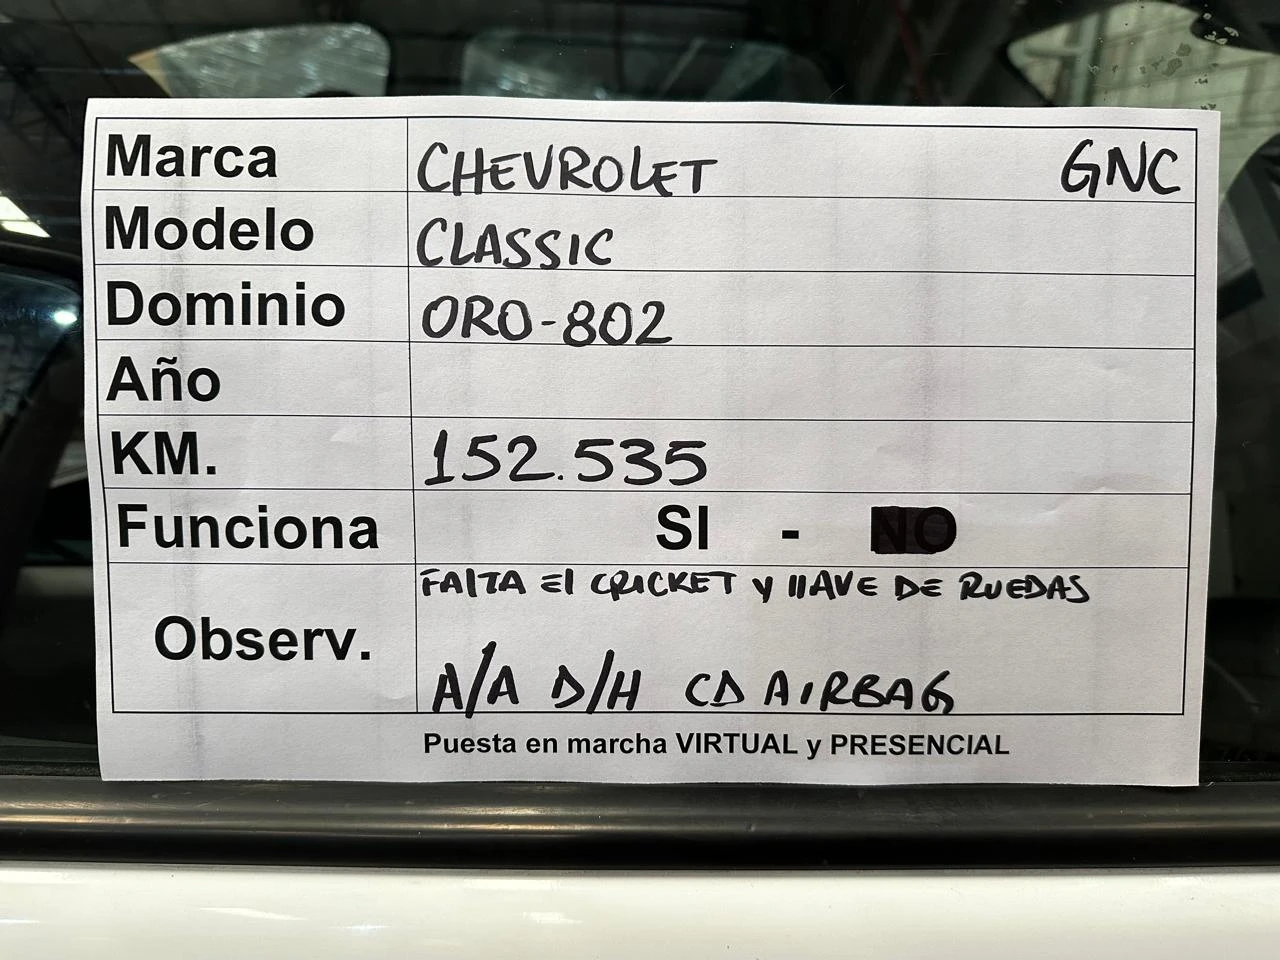 Marca CHEVROLET GNC
Modelo CLASSIC
Dominio ORO-802
Año
KM. 152.535
Funciona SI - NO
Observ. FALTA El CRICKET Y llAVE DE RUEDAS
A/A D/H CD AIRBAG
Puesta en marcha VIRTUAL y PRESENCIAL